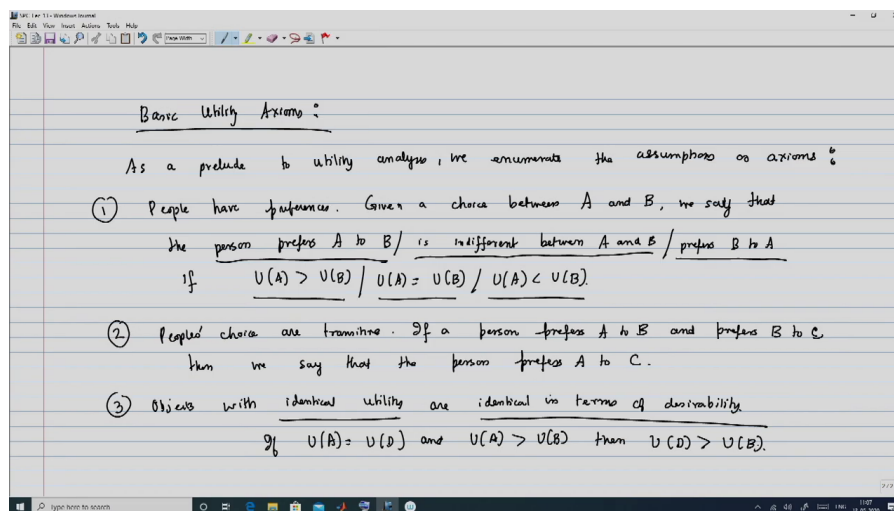 SPC Lec 13 - Windows Journal
File Edit View Insert Actions Tools Help
Page Width
Basic Utility Axioms :
As a prelude to utility analysis, we enumerate the assumptions or axioms :
① People have preferences. Given a choice between A and B, we say that
the person prefers A to B / is indifferent between A and B / prefers B to A
if U(A) > U(B) / U(A) = U(B) / U(A) < U(B).
② Peoples' choice are transitive. If a person prefers A to B and prefers B to C
then we say that the person prefers A to C.
③ Objects with identical utility are identical in terms of desirability.
If U(A) = U(D) and U(A) > U(B) then U(D) > U(B).
2/2
Type here to search
ENG
11:07